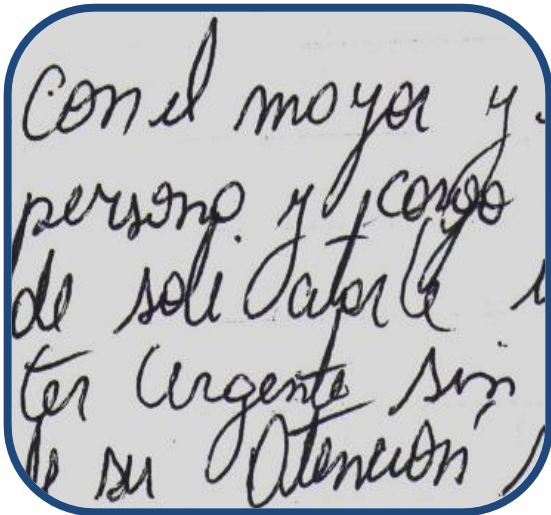 Con el mayor y
persona y cargo
de solicitarle
ter urgente sin
de su atención